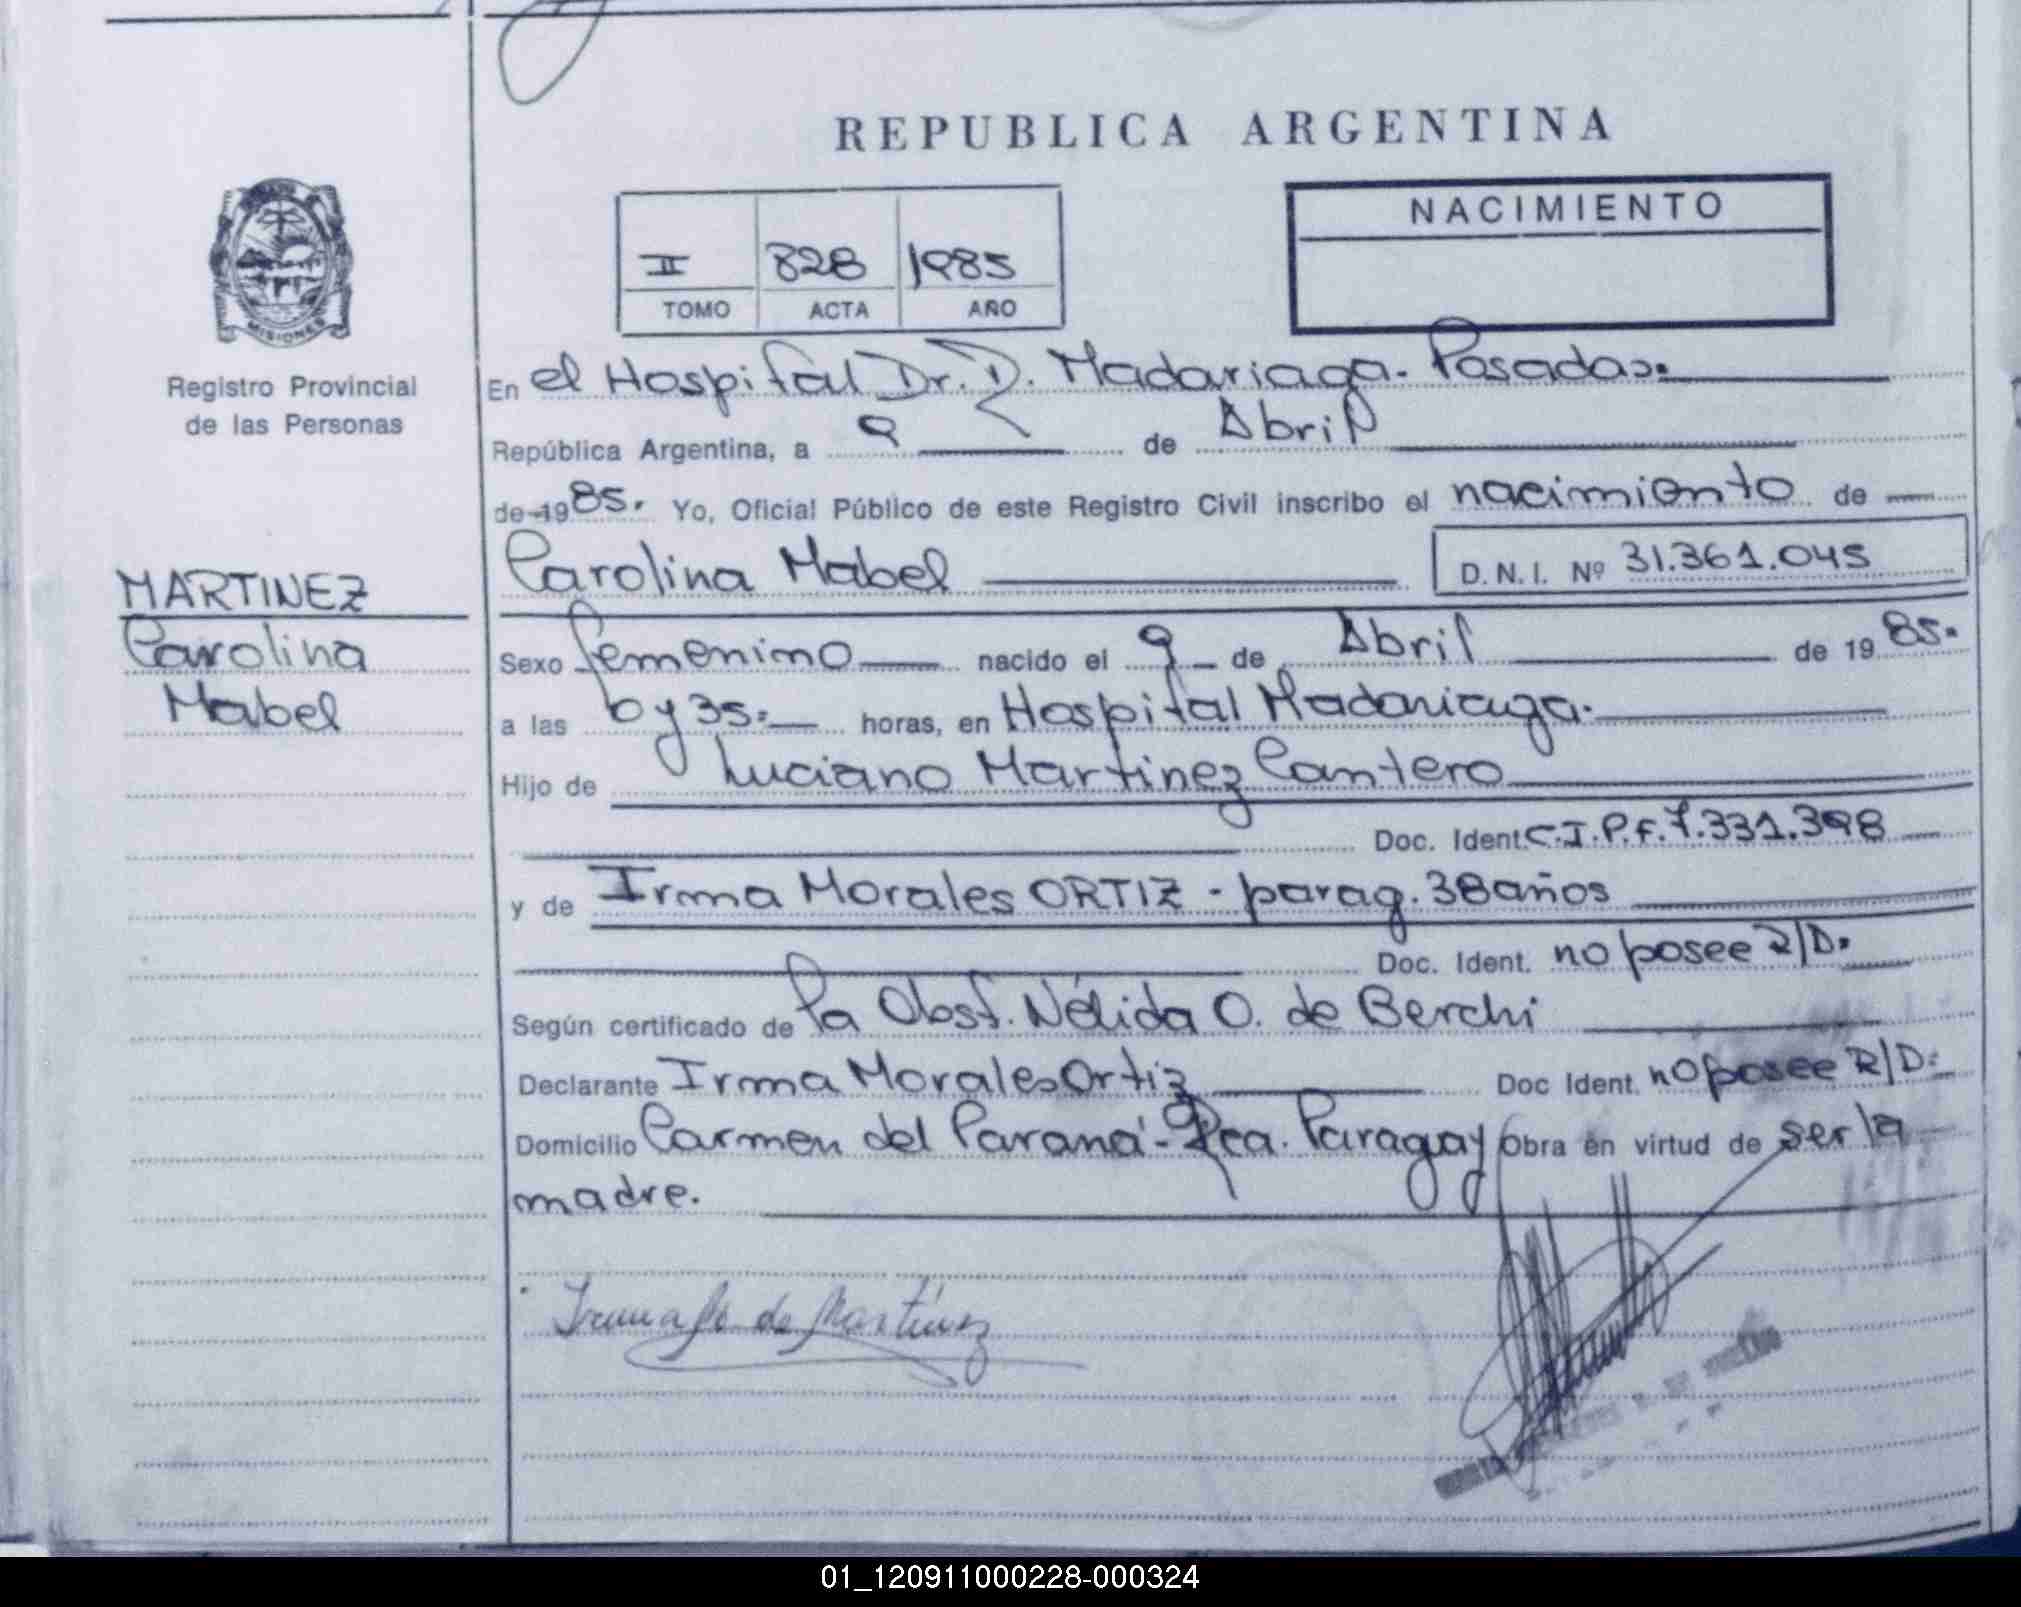 REPUBLICA ARGENTINA
NACIMIENTO
II 828 1985
TOMO ACTA AÑO
MISIONES
Registro Provincial
de las Personas
MARTINEZ
Carolina
Mabel
En el Hospital Dr. D. Madariaga. Posadas.
República Argentina, a 9 de Abril
de 1985. Yo, Oficial Público de este Registro Civil inscribo el nacimiento de
Carolina Mabel D. N. I. Nº 31.361.045
Sexo femenino nacido el 9 de Abril de 1985.
a las 6 y 35. horas, en Hospital Madariaga.
Hijo de Luciano Martinez Cantero
Doc. Ident. C.I.P.F. 7.331.398
y de Irma Morales ORTIZ - parag. 38 años
Doc. Ident. no posee R/D.
Según certificado de la Obst. Nélida O. de Berchi
Declarante Irma Morales Ortiz Doc Ident. no posee R/D.
Domicilio Carmen del Paraná - Rca. Paraguay Obra en virtud de ser la
madre.
de Martínez
01_120911000228-000324